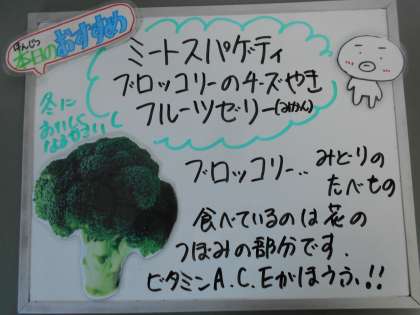 ほんじつ
本日のおすすめ
ミートスパゲーティ
ブロッコリーのチーズやき
フルーツゼリー(みかん)
冬に
おいしく
なるやさいし
ブロッコリー‥みどりの
たべもの
食べているのは花の
つぼみの部分です.
ビタミンA.C.Eがほうふ!!